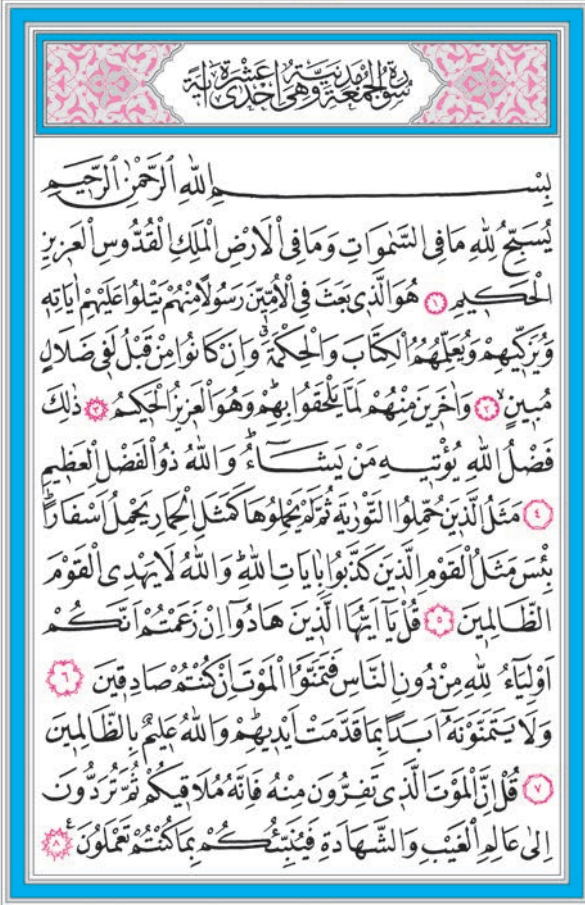 سُورَةُ الْجُمُعَةِ مَدَنِيَّةٌ وَهِيَ اِحْدٰى عَشْرَةَ اٰيَةً
بِسْمِ اللّٰهِ الرَّحْمٰنِ الرَّحِيمِ
يُسَبِّحُ لِلّٰهِ مَا فِي السَّمٰوَاتِ وَمَا فِي الْاَرْضِ الْمَلِكِ الْقُدُّوسِ الْعَزِيزِ
الْحَكِيمِ ﴿١﴾ هُوَ الَّذِي بَعَثَ فِي الْاُمِّيّ۪نَ رَسُولًا مِنْهُمْ يَتْلُوا عَلَيْهِمْ اٰيَاتِهِ
وَيُزَكِّيهِمْ وَيُعَلِّمُهُمُ الْكِتَابَ وَالْحِكْمَةَۗ وَاِنْ كَانُوا مِنْ قَبْلُ لَفِي ضَلَالٍ
مُبِينٍۙ ﴿٢﴾ وَاٰخَرِينَ مِنْهُمْ لَمَّا يَلْحَقُوا بِهِمْۜ وَهُوَ الْعَزِيزُ الْحَكِيمُ ﴿٣﴾ ذٰلِكَ
فَضْلُ اللّٰهِ يُؤْتِيهِ مَنْ يَشَاءُۜ وَاللّٰهُ ذُو الْفَضْلِ الْعَظِيمِ
﴿٤﴾ مَثَلُ الَّذِينَ حُمِّلُوا التَّوْرٰيةَ ثُمَّ لَمْ يَحْمِلُوهَا كَمَثَلِ الْحِمَارِ يَحْمِلُ اَسْفَارًاۜ
بِئْسَ مَثَلُ الْقَوْمِ الَّذِينَ كَذَّبُوا بِاٰيَاتِ اللّٰهِۜ وَاللّٰهُ لَا يَهْدِي الْقَوْمَ
الظَّالِمِينَ ﴿٥﴾ قُلْ يَا اَيُّهَا الَّذِينَ هَادُوا اِنْ زَعَمْتُمْ اَنَّكُمْ
اَوْلِيَاءُ لِلّٰهِ مِنْ دُونِ النَّاسِ فَتَمَنَّوُا الْمَوْتَ اِنْ كُنْتُمْ صَادِقِينَ ﴿٦﴾
وَلَا يَتَمَنَّوْنَهُ اَبَدًا بِمَا قَدَّمَتْ اَيْدِيهِمْۜ وَاللّٰهُ عَلِيمٌ بِالظَّالِمِينَ
﴿٧﴾ قُلْ اِنَّ الْمَوْتَ الَّذِي تَفِرُّونَ مِنْهُ فَاِنَّهُ مُلَاقِيكُمْ ثُمَّ تُرَدُّونَ
اِلٰى عَالِمِ الْغَيْبِ وَالشَّهَادَةِ فَيُنَبِّئُكُمْ بِمَا كُنْتُمْ تَعْمَلُونَ۟ ع ﴿٨﴾